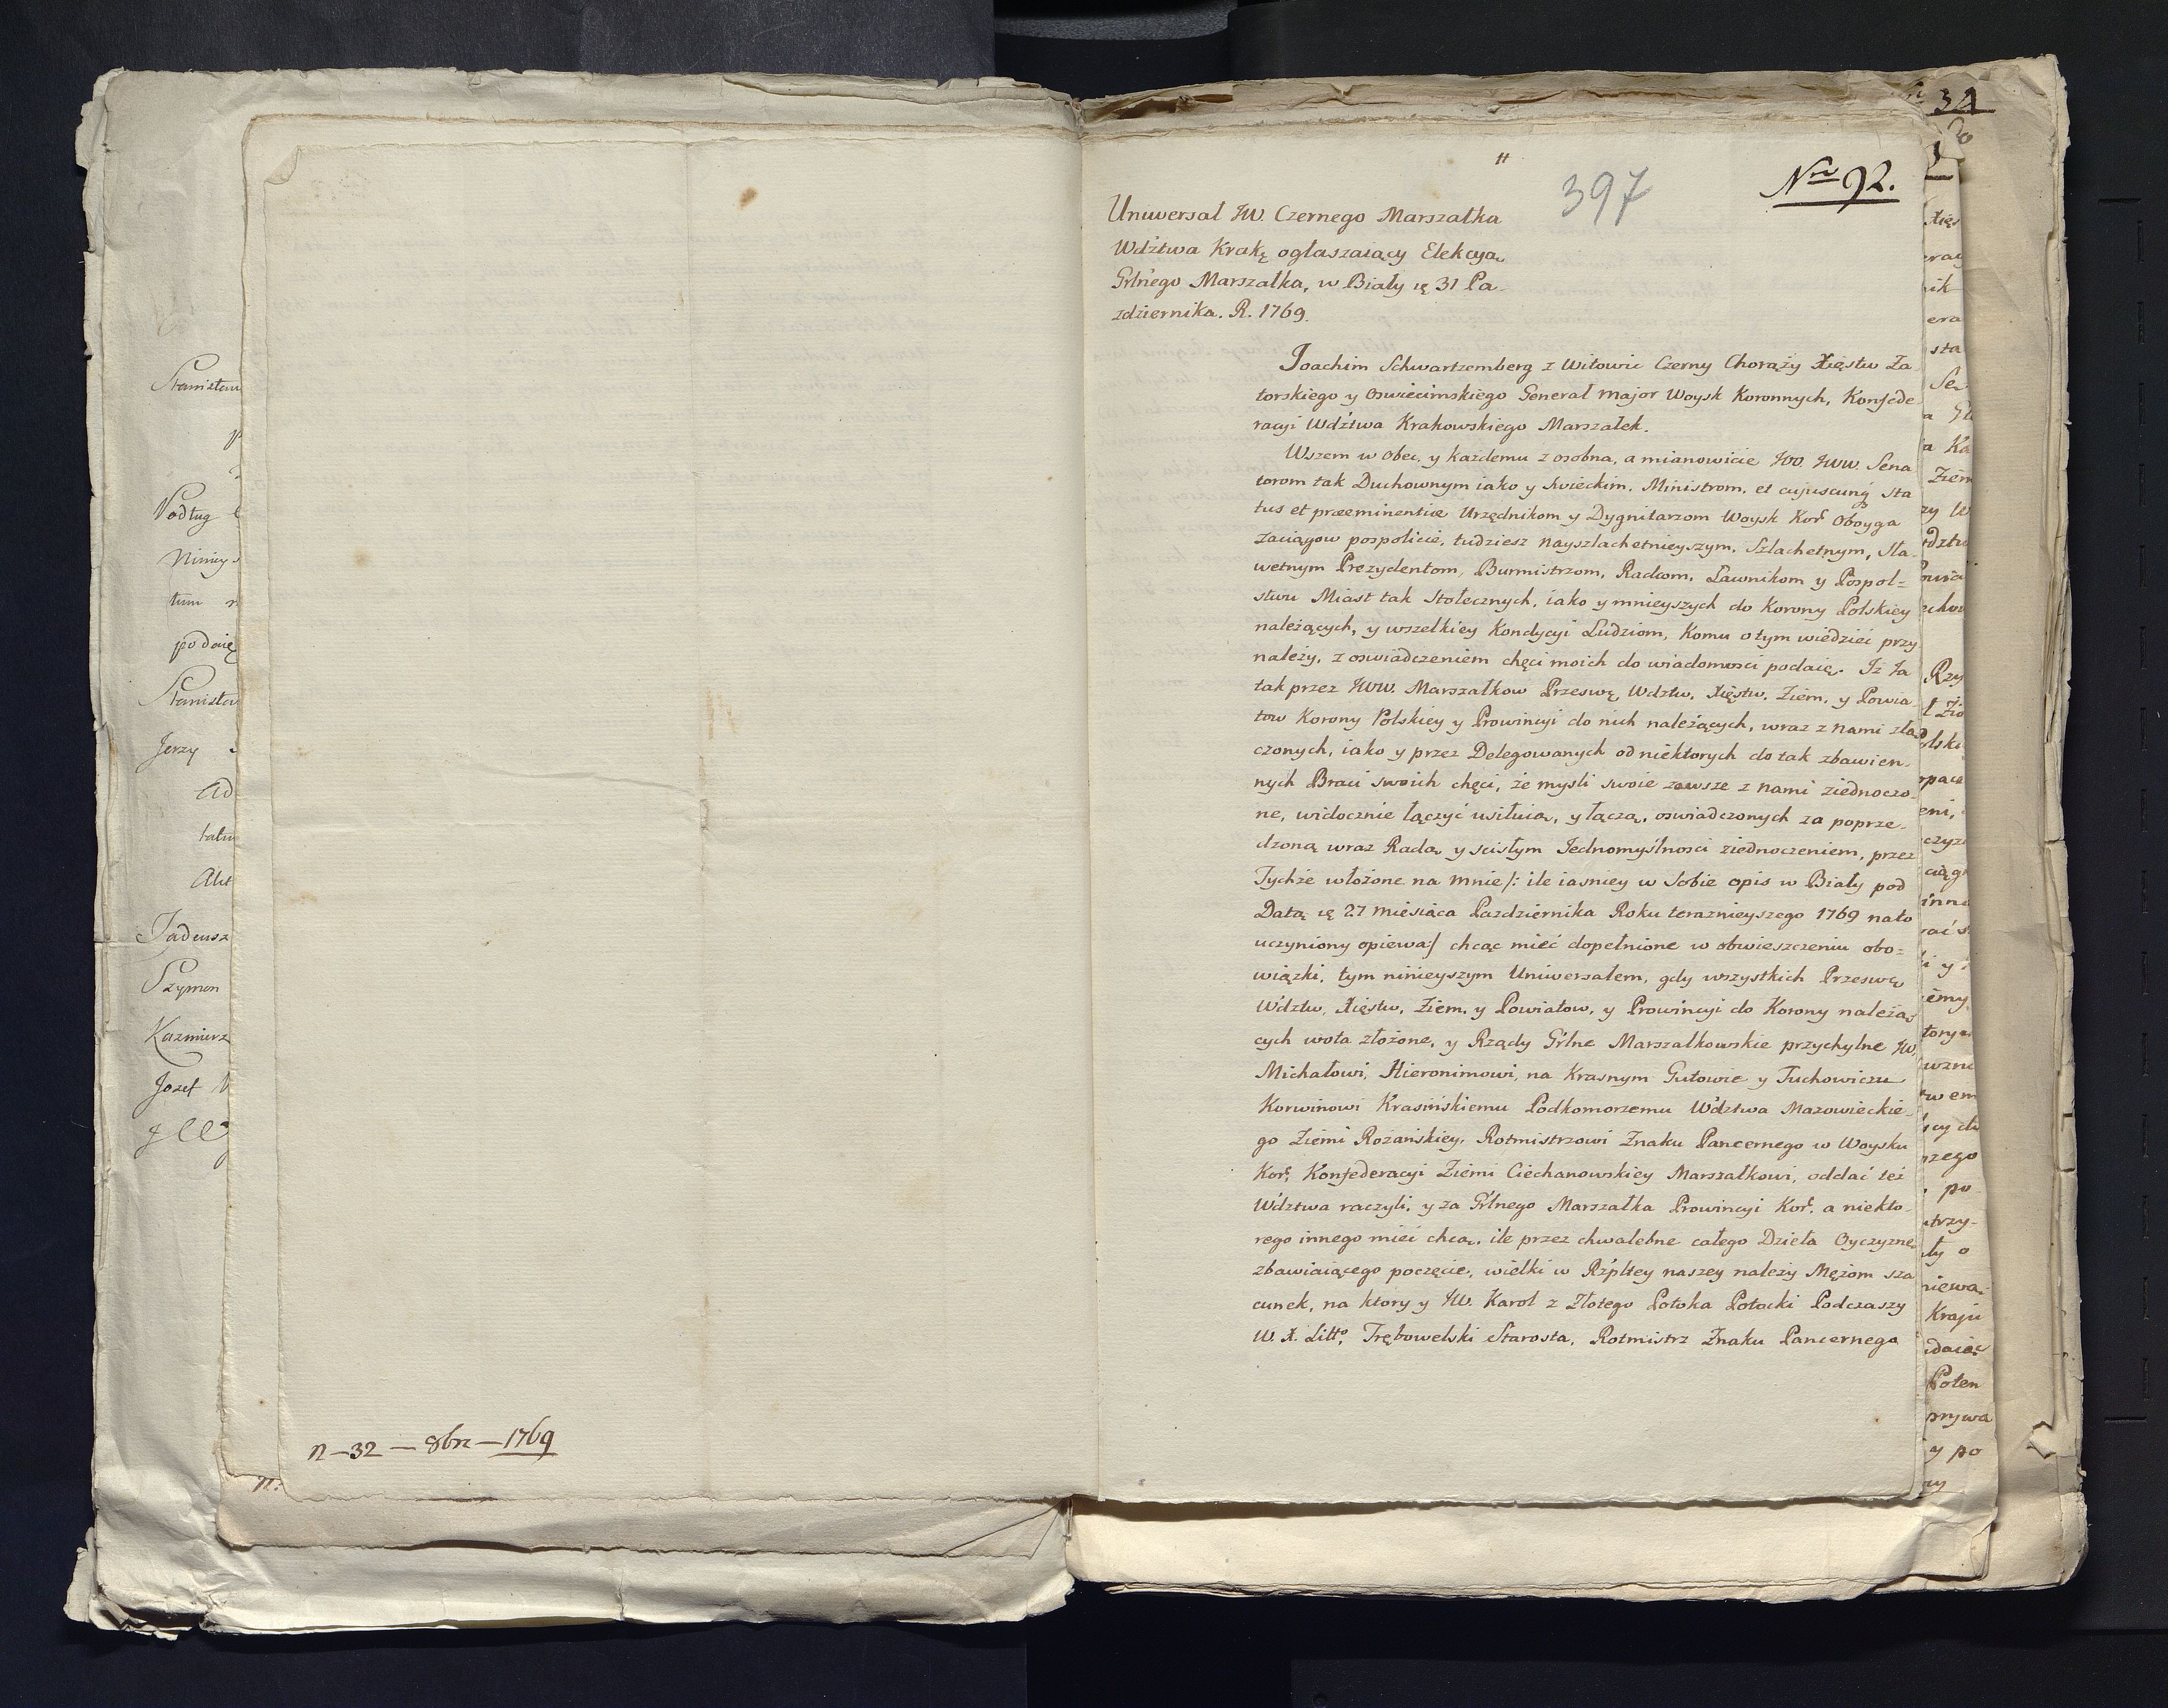 Stanisław
Podług
Niniey
tum
podaię
Stanisław
Jerzy
Ad
tatu
Akt
Tadeusz
Szymon
Kazmierz
Jozef
n – 32 – 8bra – 1769
n:
11
397
Nro 92.
Uniwersał JW. Czernego Marszałka
Wdztwa Krakę ogłaszaiący Elekcyą
Grlnego Marszałka, w Biały ię 31 Pa-
zdziernika. R. 1769.
Joachim Schwartzemberg z Witowic Czerny Chorąży Xięstw Za
torskiego y Oswiecimskiego Generał Major Woysk Koronnych, Konfede-
racyi Wdztwa Krakowskiego Marszałek.
Wszem w Obec, y każdemu z osobna, a mianowicie JOO. JWW. Sena
torom tak Duchownym iako y Swieckim, Ministrom, et cujuscunq sta
tus et præeminentiæ Urzędnikom y Dygnitarzom Woysk Kor. Oboyga
Zaciągow pospolicie, tudziesz Nayszlachetnieyszym, Szlachetnym, Sła-
wetnym Prezydentom, Burmistrzom, Radcom, Ławnikom y Pospol=
stwu Miast tak Stołecznych, iako y mnieyszych do Korony Polskiey
należących, y wszelkiey Kondycyi Ludziom, Komu o tym wiedzieć przy
należy, z oswiadczeniem chęci moich do wiadomosci podaię. Iż Ja
tak przez JWW. Marszałkow Przeswę Wdztw, Xięstw, Ziem, y Powia-
tow Korony Polskiey y Prowincyi do nich należących, wraz z nami złą
czonych, iako y przez Delegowanych od niektorych do tak zbawien-
nych Braci swoich chęci, że mysli swoie zawsze z nami ziednoczo-
ne, widocznie łączyć usiłuią, y łączą, oswiadczonych za poprze-
dzoną wraz Radą y scisłym Jednomyślnosci ziednoczeniem, przez
Tychże włożone na mnie /: ile iasniey w Sobie opis w Biały pod
Datą ię 27 Miesiąca Pazdziernika Roku teraznieyszego 1769 nato
uczyniony opiewa/ chcąc mieć dopełnione w obwieszczeniu obo=
wiązki, tym ninieyszym Uniwersałem, gdy wszystkich Przeswę
Wdztw, Xięstw, Ziem, y Powiatow, y Prowincyi do Korony należą
cych wota złożone, y Rządy Grlne Marszałkowskie przychylne JW.
Michałowi, Hieronimowi, na Krasnym Gutowie y Tuchowiczu
Korwinowi Krasińskiemu Podkomorzemu Wdztwa Mazowieckie-
go Ziemi Rożańskiey, Rotmistrzowi Znaku Pancernego w Woysku
Kor. Konfederacyi Ziemi Ciechanowskiey Marszałkowi, oddać też
Wdztwa raczyli, y za Grlnego Marszałka Prowincyi Kor. a niekto-
rego innego mieć chcą, ile przez chwalebne całego Dzieła Oyczyznę
zbawiaiącego poczęcie, wielki w Rzpltey naszey należy Mężom sza
cunek, na ktory y JW. Karol z Złotego Potoka Potocki Podczaszy
W. X. Litto, Trębowelski Starosta, Rotmistrz Znaku Pancernego